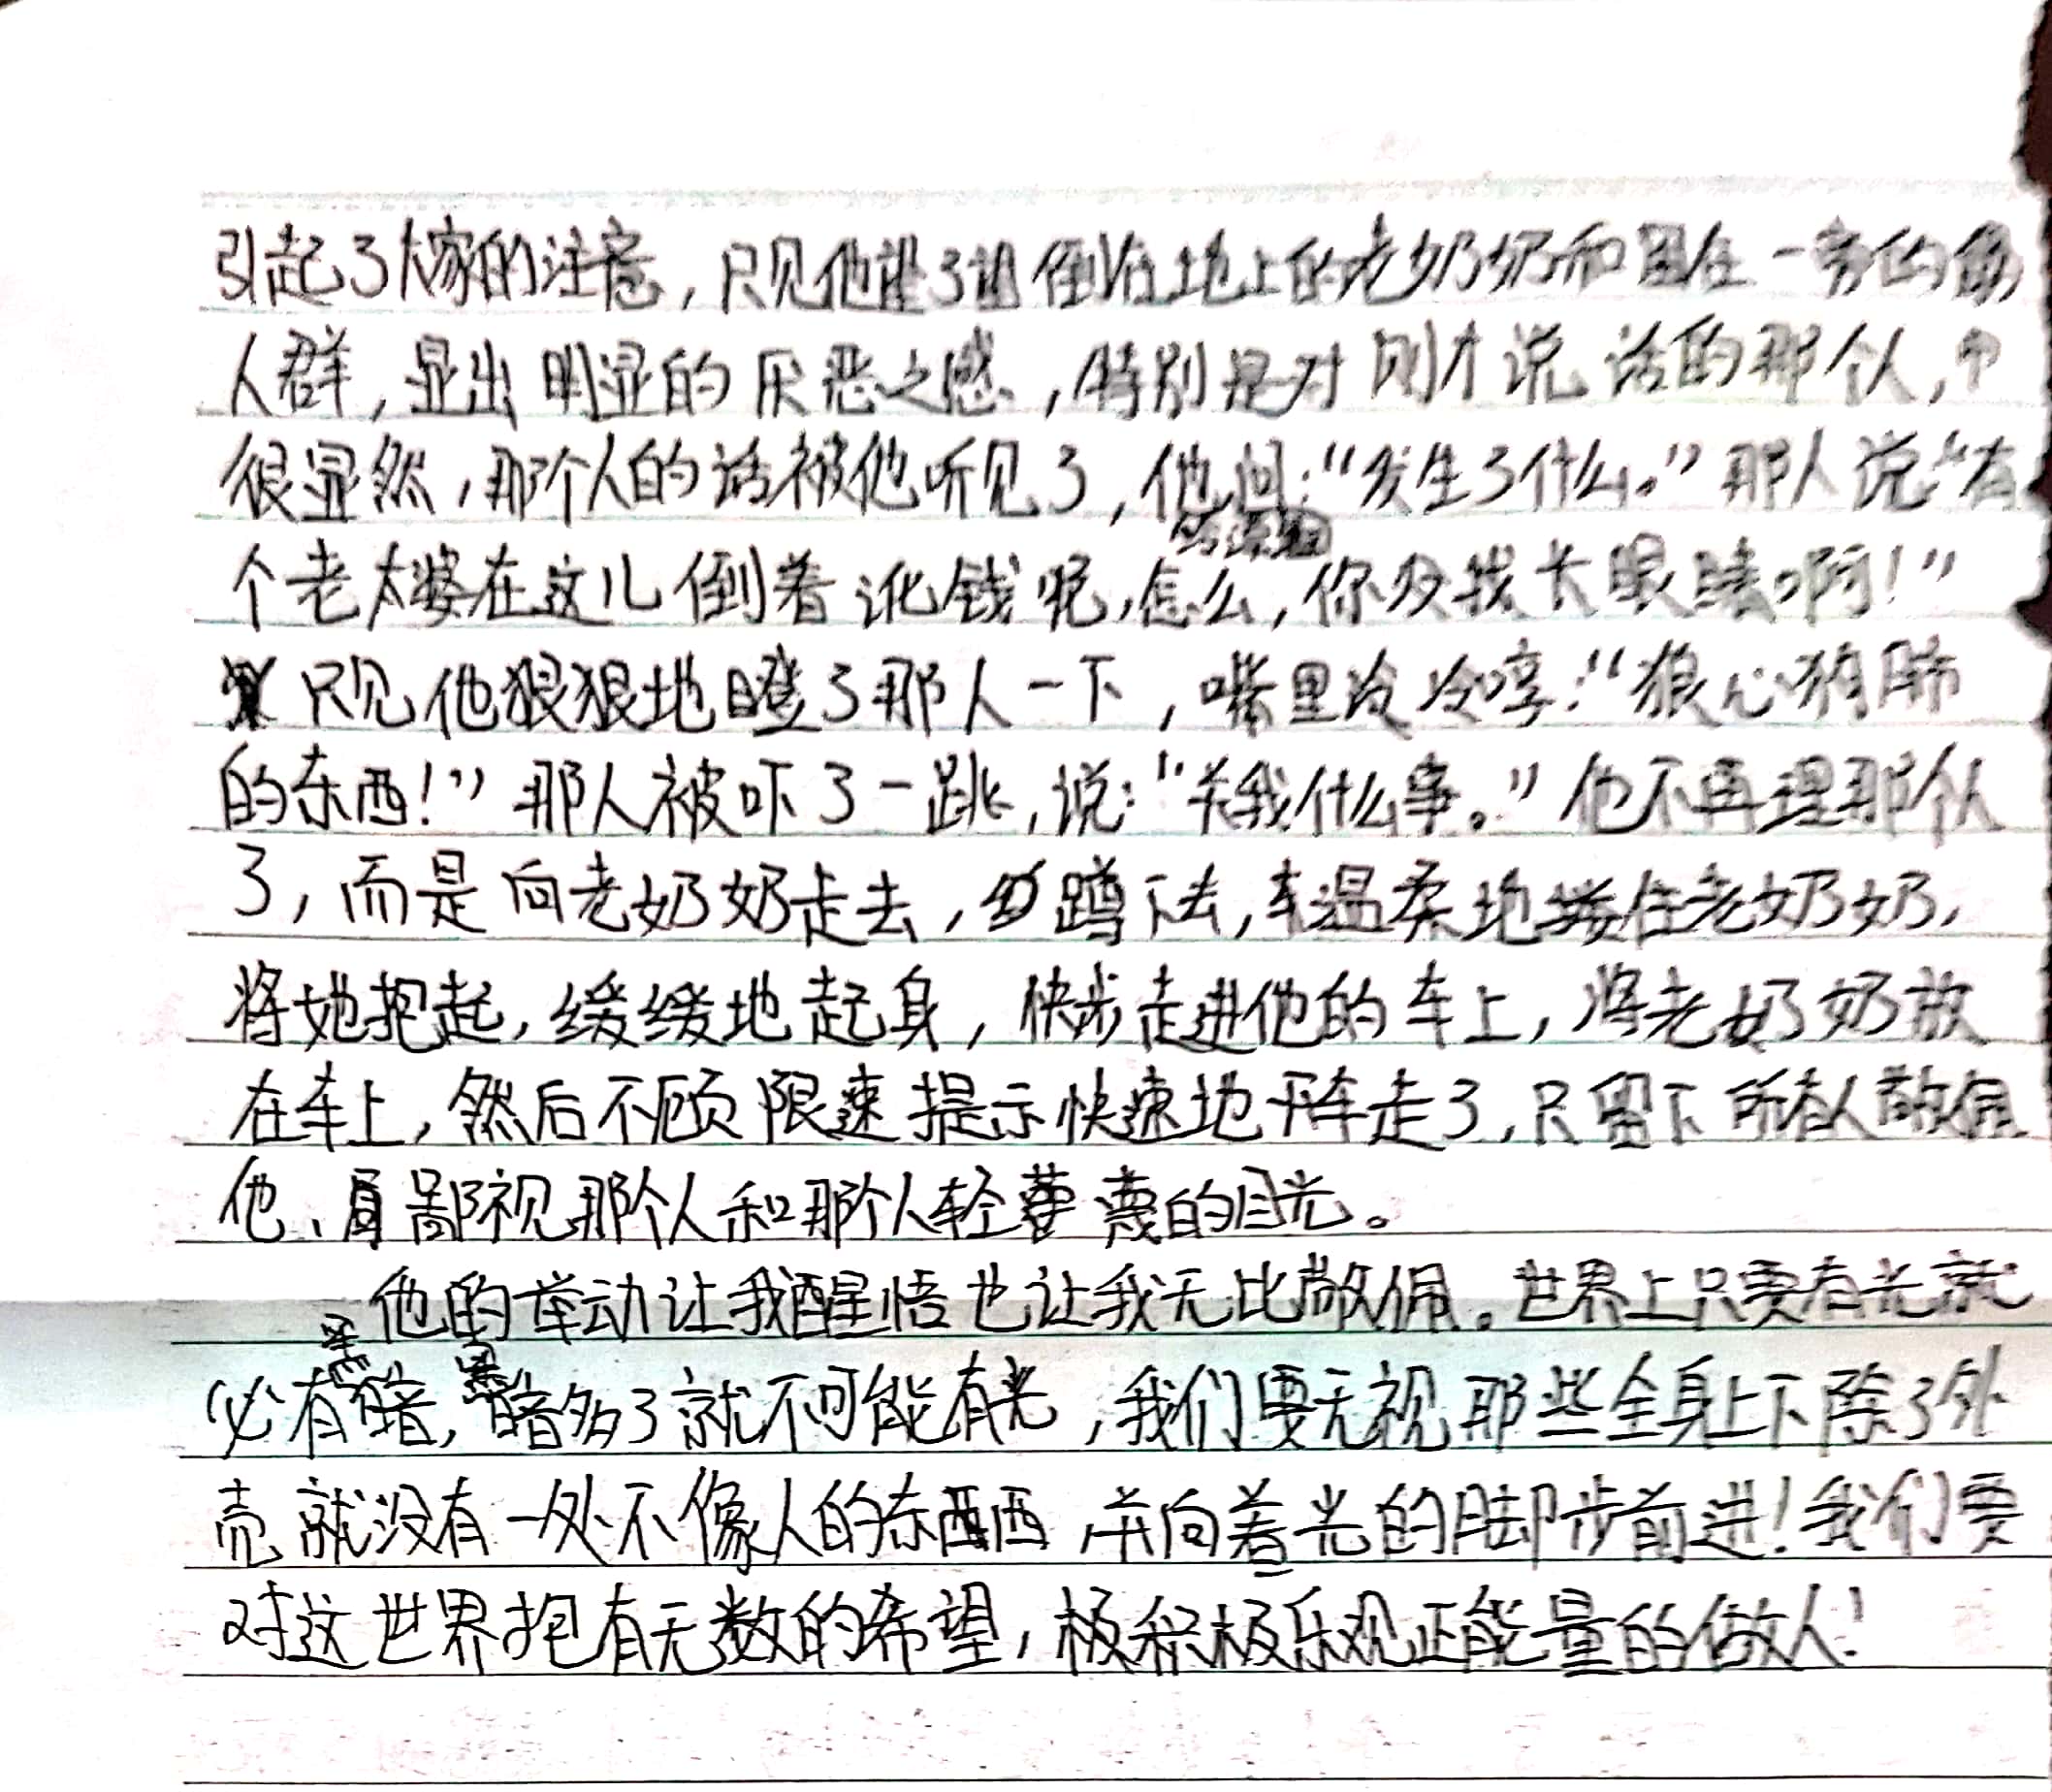 引起了大家的注意，只见他望了望倒在地上的老奶奶和围在一旁的
人群，显出明显的厌恶之感，特别是对刚才说话的那个人，
很显然，那个人的话被他听见了，他问：“发生了什么。”那人说“有
个老太婆在这儿倒着讹钱呢，怎么，你没找长眼睛啊！”
只见他狠狠地瞪了那人一下，嘴里冷冷哼：“狼心狗肺
的东西！”那人被吓了一跳，说：“关我什么事。”他不再理那个人
了，而是向老奶奶走去，蹲下去，温柔地搂住老奶奶，
将她抱起，缓缓地起身，快步走进他的车上，将老奶奶放
在车上，然后不顾限速提示快速地开车走了，只留下所有人敬佩
他、鄙视那个人和那个人轻蔑的目光。
他的举动让我醒悟也让我无比敬佩。世界上只要有光就
必有黑暗，黑暗多了就不可能有光，我们要无视那些全身上下除了外
壳就没有一处不像人的东西，并向着光的脚步前进！我们要
对这世界抱有无数的希望，极积极乐观正能量的做人！